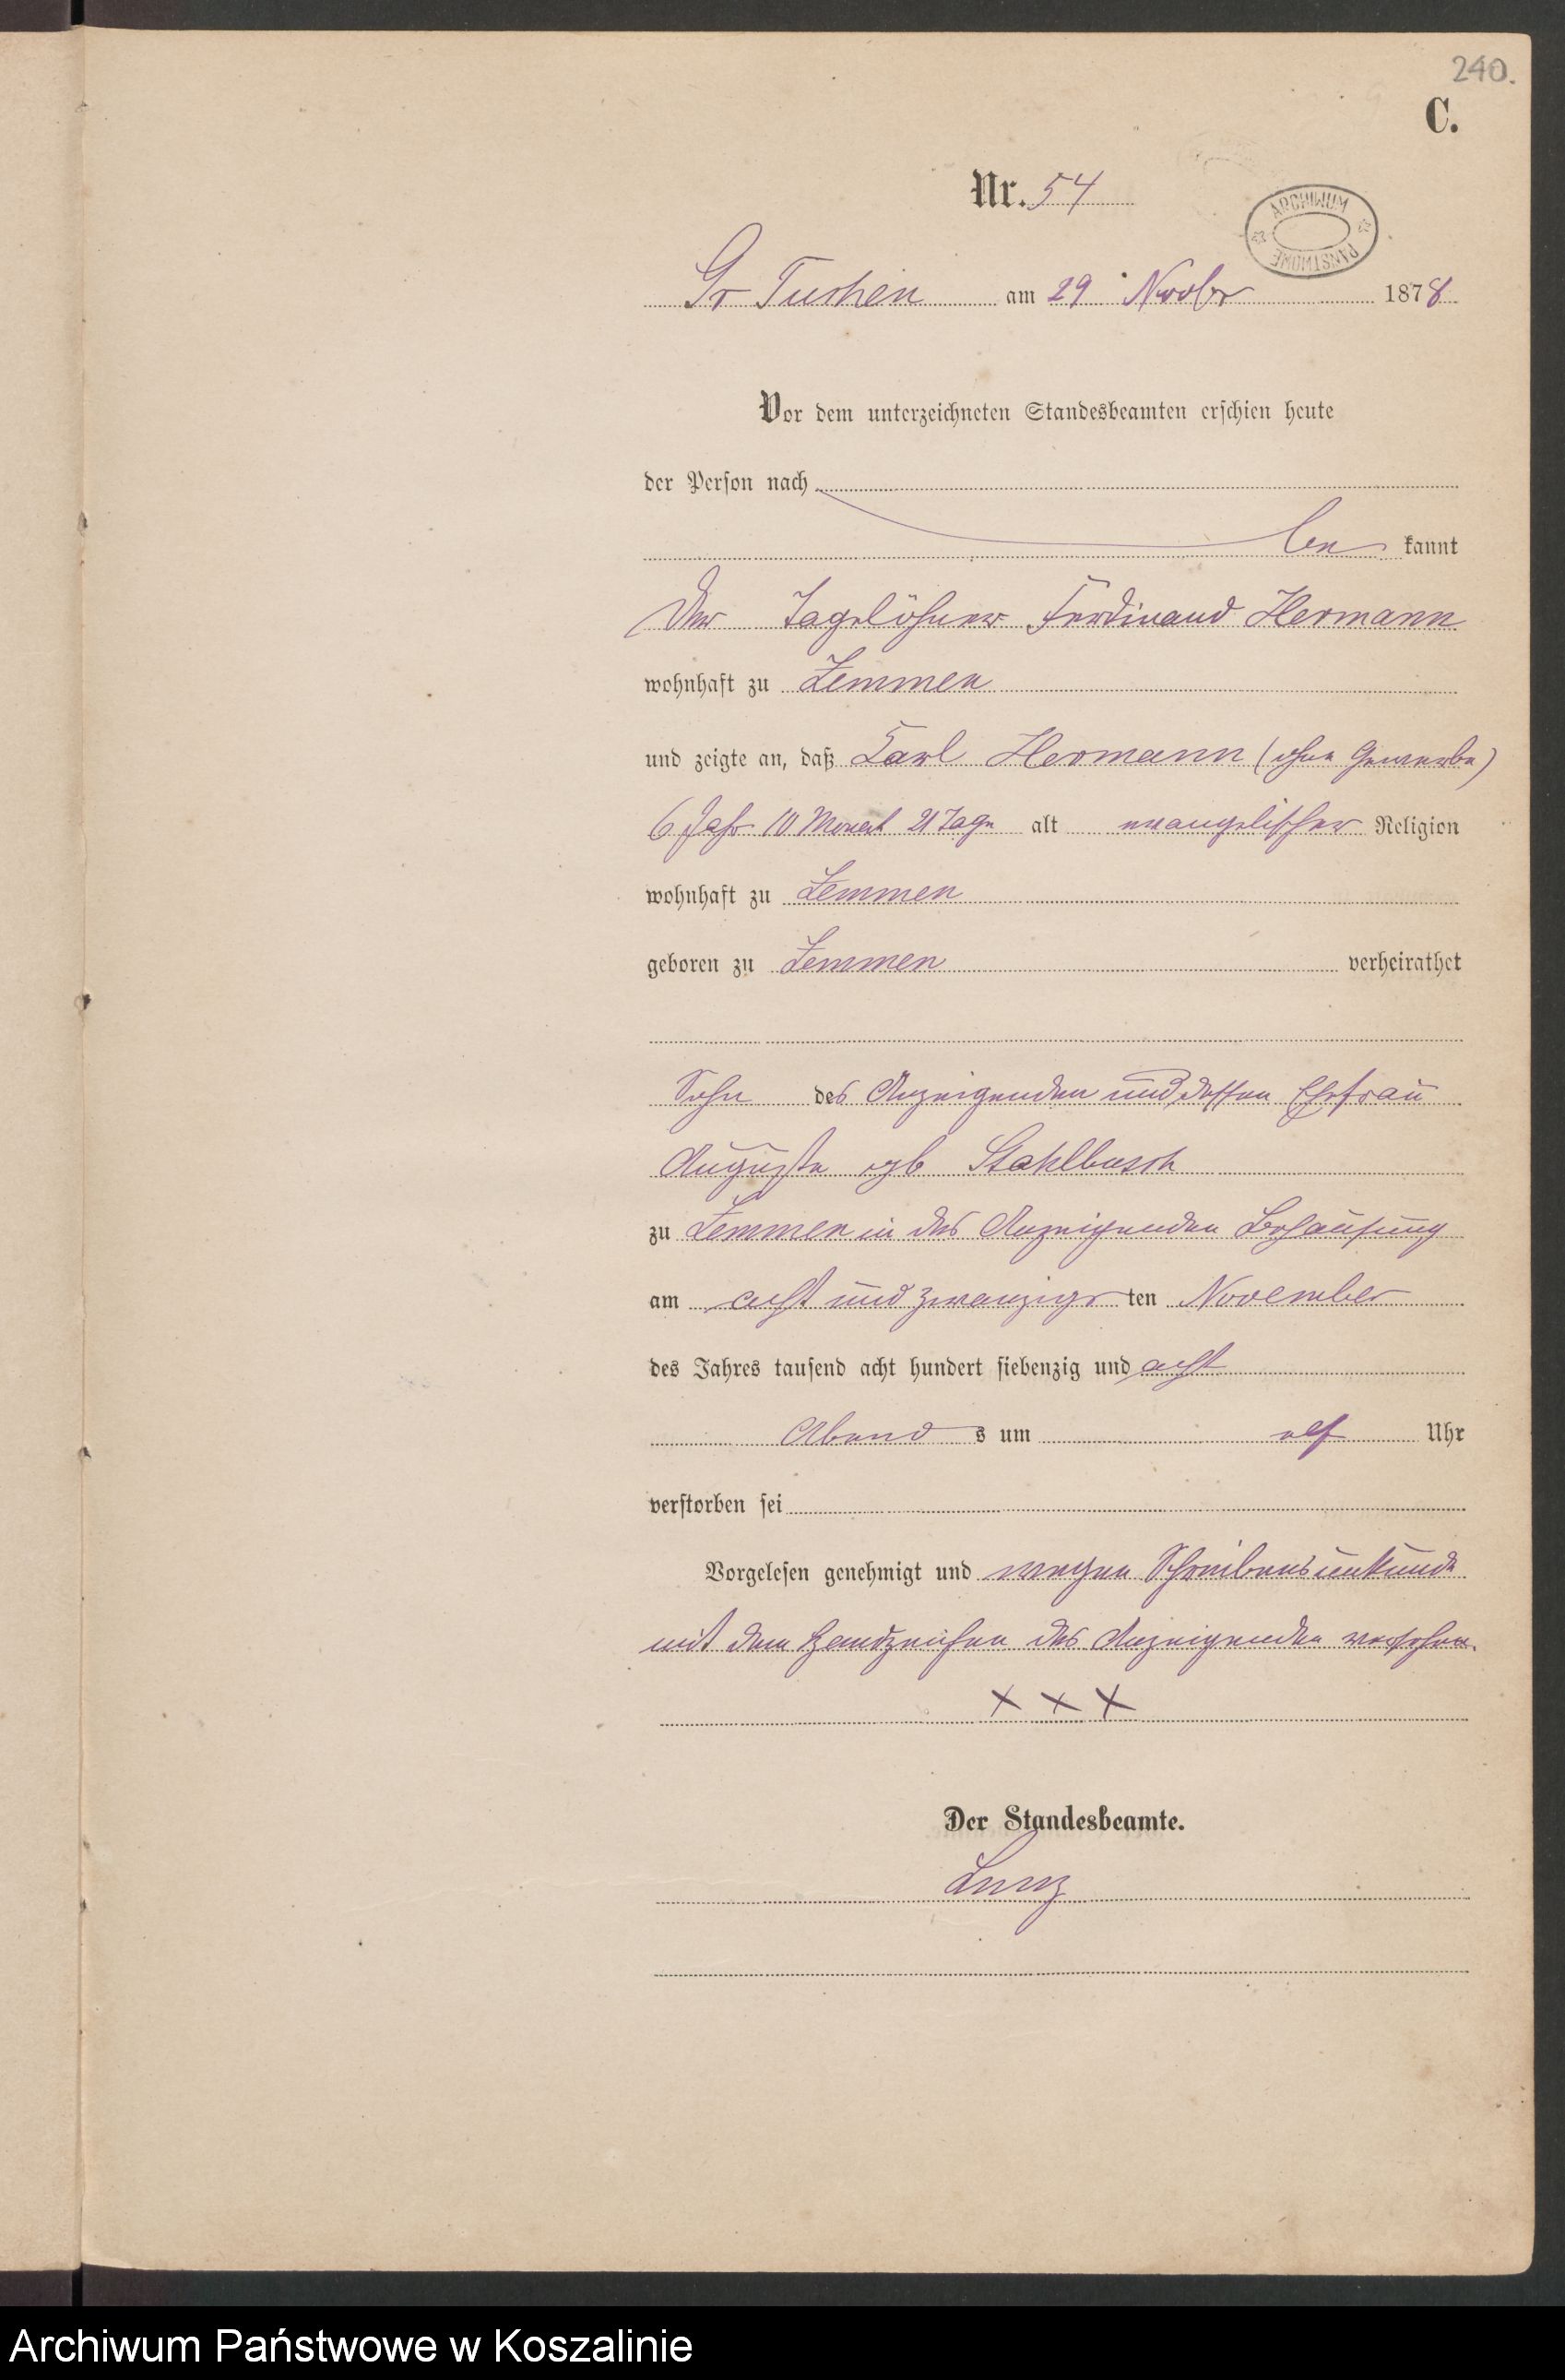 240.
C.
Nr. 54
ARCHIWUM PAŃSTWOWE
Gr Tuchen am 29 Novbr 1878
Vor dem unterzeichneten Standesbeamten erschien heute
der Person nach
be kannt
Der Tagelöhner Ferdinand Hermann
wohnhaft zu Zemmen
und zeigte an, daß Carl Hermann (ohne Gewerbe)
6 Jahr 10 Monat 21 Tage alt evangelischer Religion
wohnhaft zu Zemmen
geboren zu Zemmen verheirathet
Sohn des Anzeigenden und dessen Ehefrau
Auguste geb Stahlbusch
zu Zemmen in des Anzeigenden Behausung
am acht und zwanzigsten November
des Jahres tausend acht hundert siebenzig und acht
Abend s um elf Uhr
verstorben sei
Vorgelesen genehmigt und wegen Schreibensunkunde
mit dem Handzeichen des Anzeigenden versehen.
x x x
Der Standesbeamte.
Archiwum Państwowe w Koszalinie